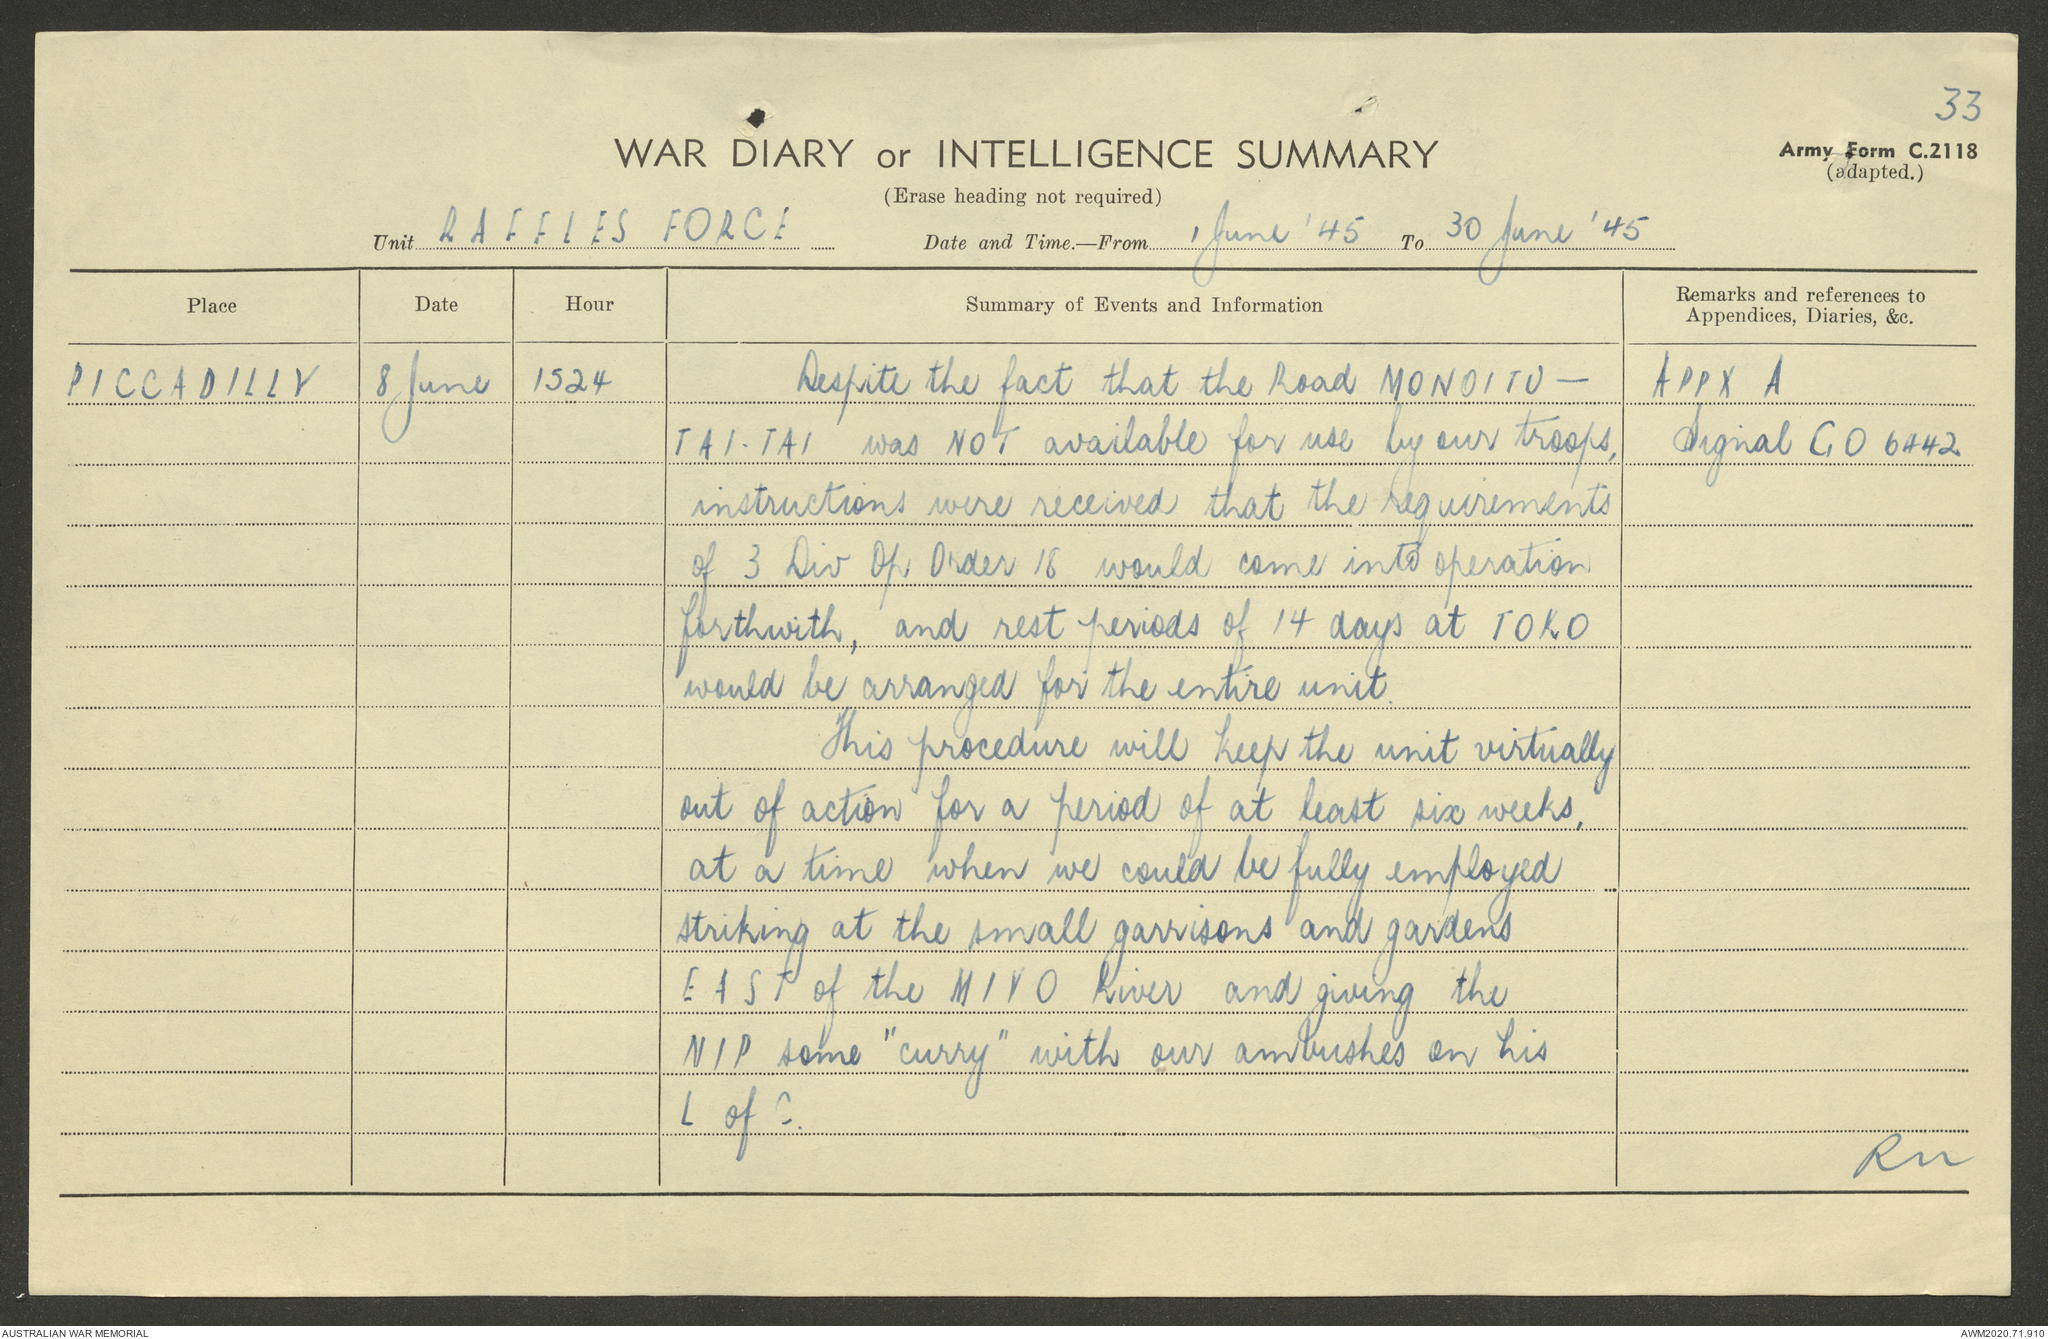 33
WAR DIARY or INTELLIGENCE SUMMARY
Army Form C.2118
(adapted.)
(Erase heading not required)
Unit RAFFLES FORCE Date and Time.—From 1 June '45 To 30 June '45
Place Date Hour Summary of Events and Information Remarks and references to
Appendices, Diaries, &c.
PICCADILLY 8 June 1524 Despite the fact that the Road MONOITU — APPX A
TAI-TAI was NOT available for use by our troops, Signal GO 6442
instructions were received that the requirements
of 3 Div Op Order 18 would come into operation
forthwith, and rest periods of 14 days at TOKO
would be arranged for the entire unit.
This procedure will keep the unit virtually
out of action for a period of at least six weeks,
at a time when we could be fully employed
striking at the small garrisons and gardens
EAST of the MIVO River and giving the
NIP some "curry" with our ambushes on his
L of C.
AUSTRALIAN WAR MEMORIAL
AWM2020.71.910